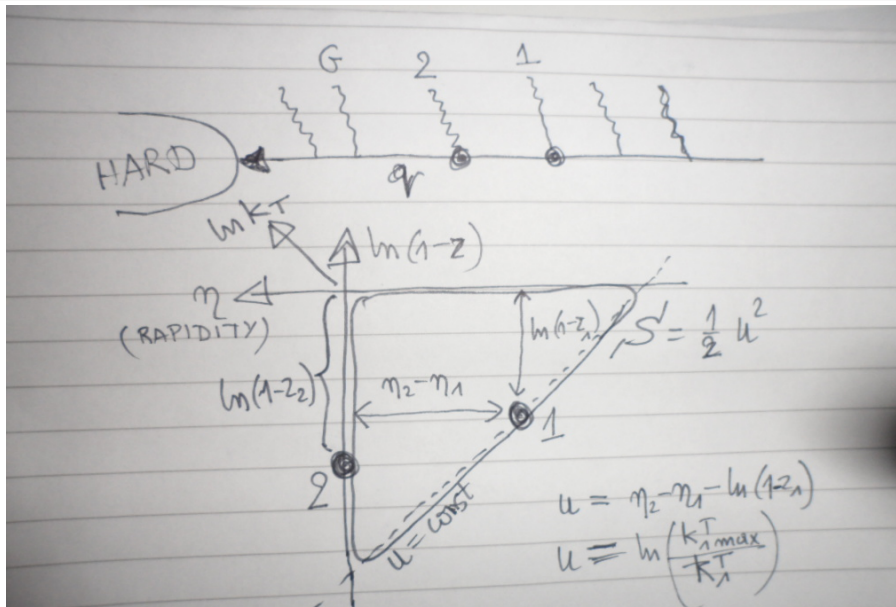 G 2 1
HARD
q
ln KT
ln(1-z)
η
(RAPIDITY)
ln(1-z₁)
S = 1/2 u²
ln(1-z₂)
η₂-η₁
1
2
u = const
u = η₂-η₁-ln(1-z₁)
u = ln(k₁ᵀmax/k₁ᵀ)